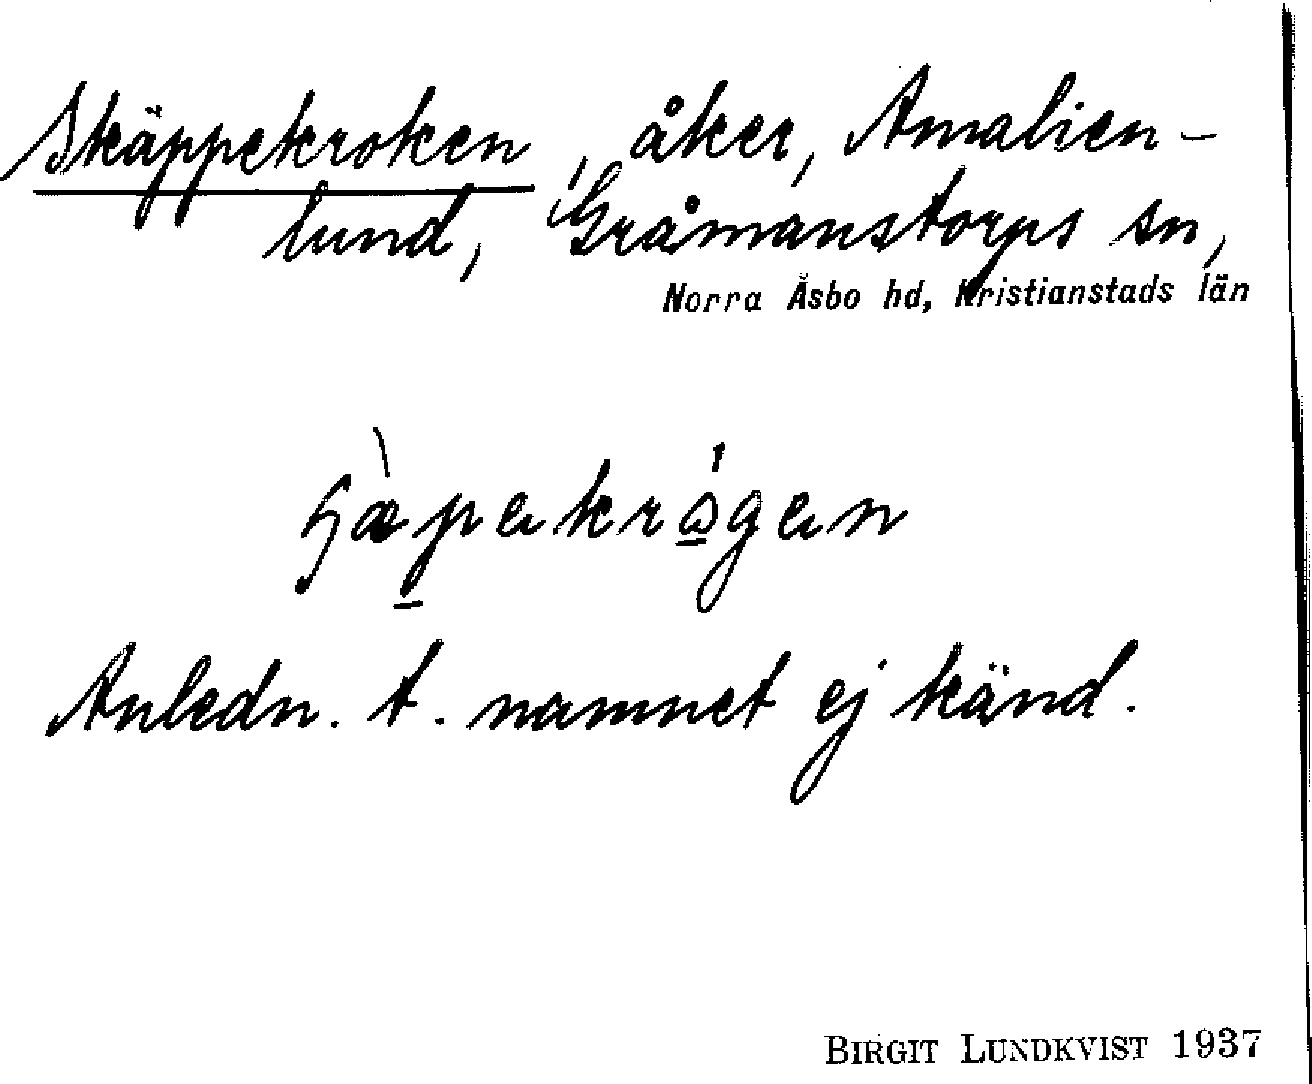 Skäppekroken, åker, Amalien-
lund, Gråmanstorps sn,
Norra Åsbo hd, Kristianstads län
Anledn. t. namnet ej känd.
BIRGIT LUNDKVIST 1937